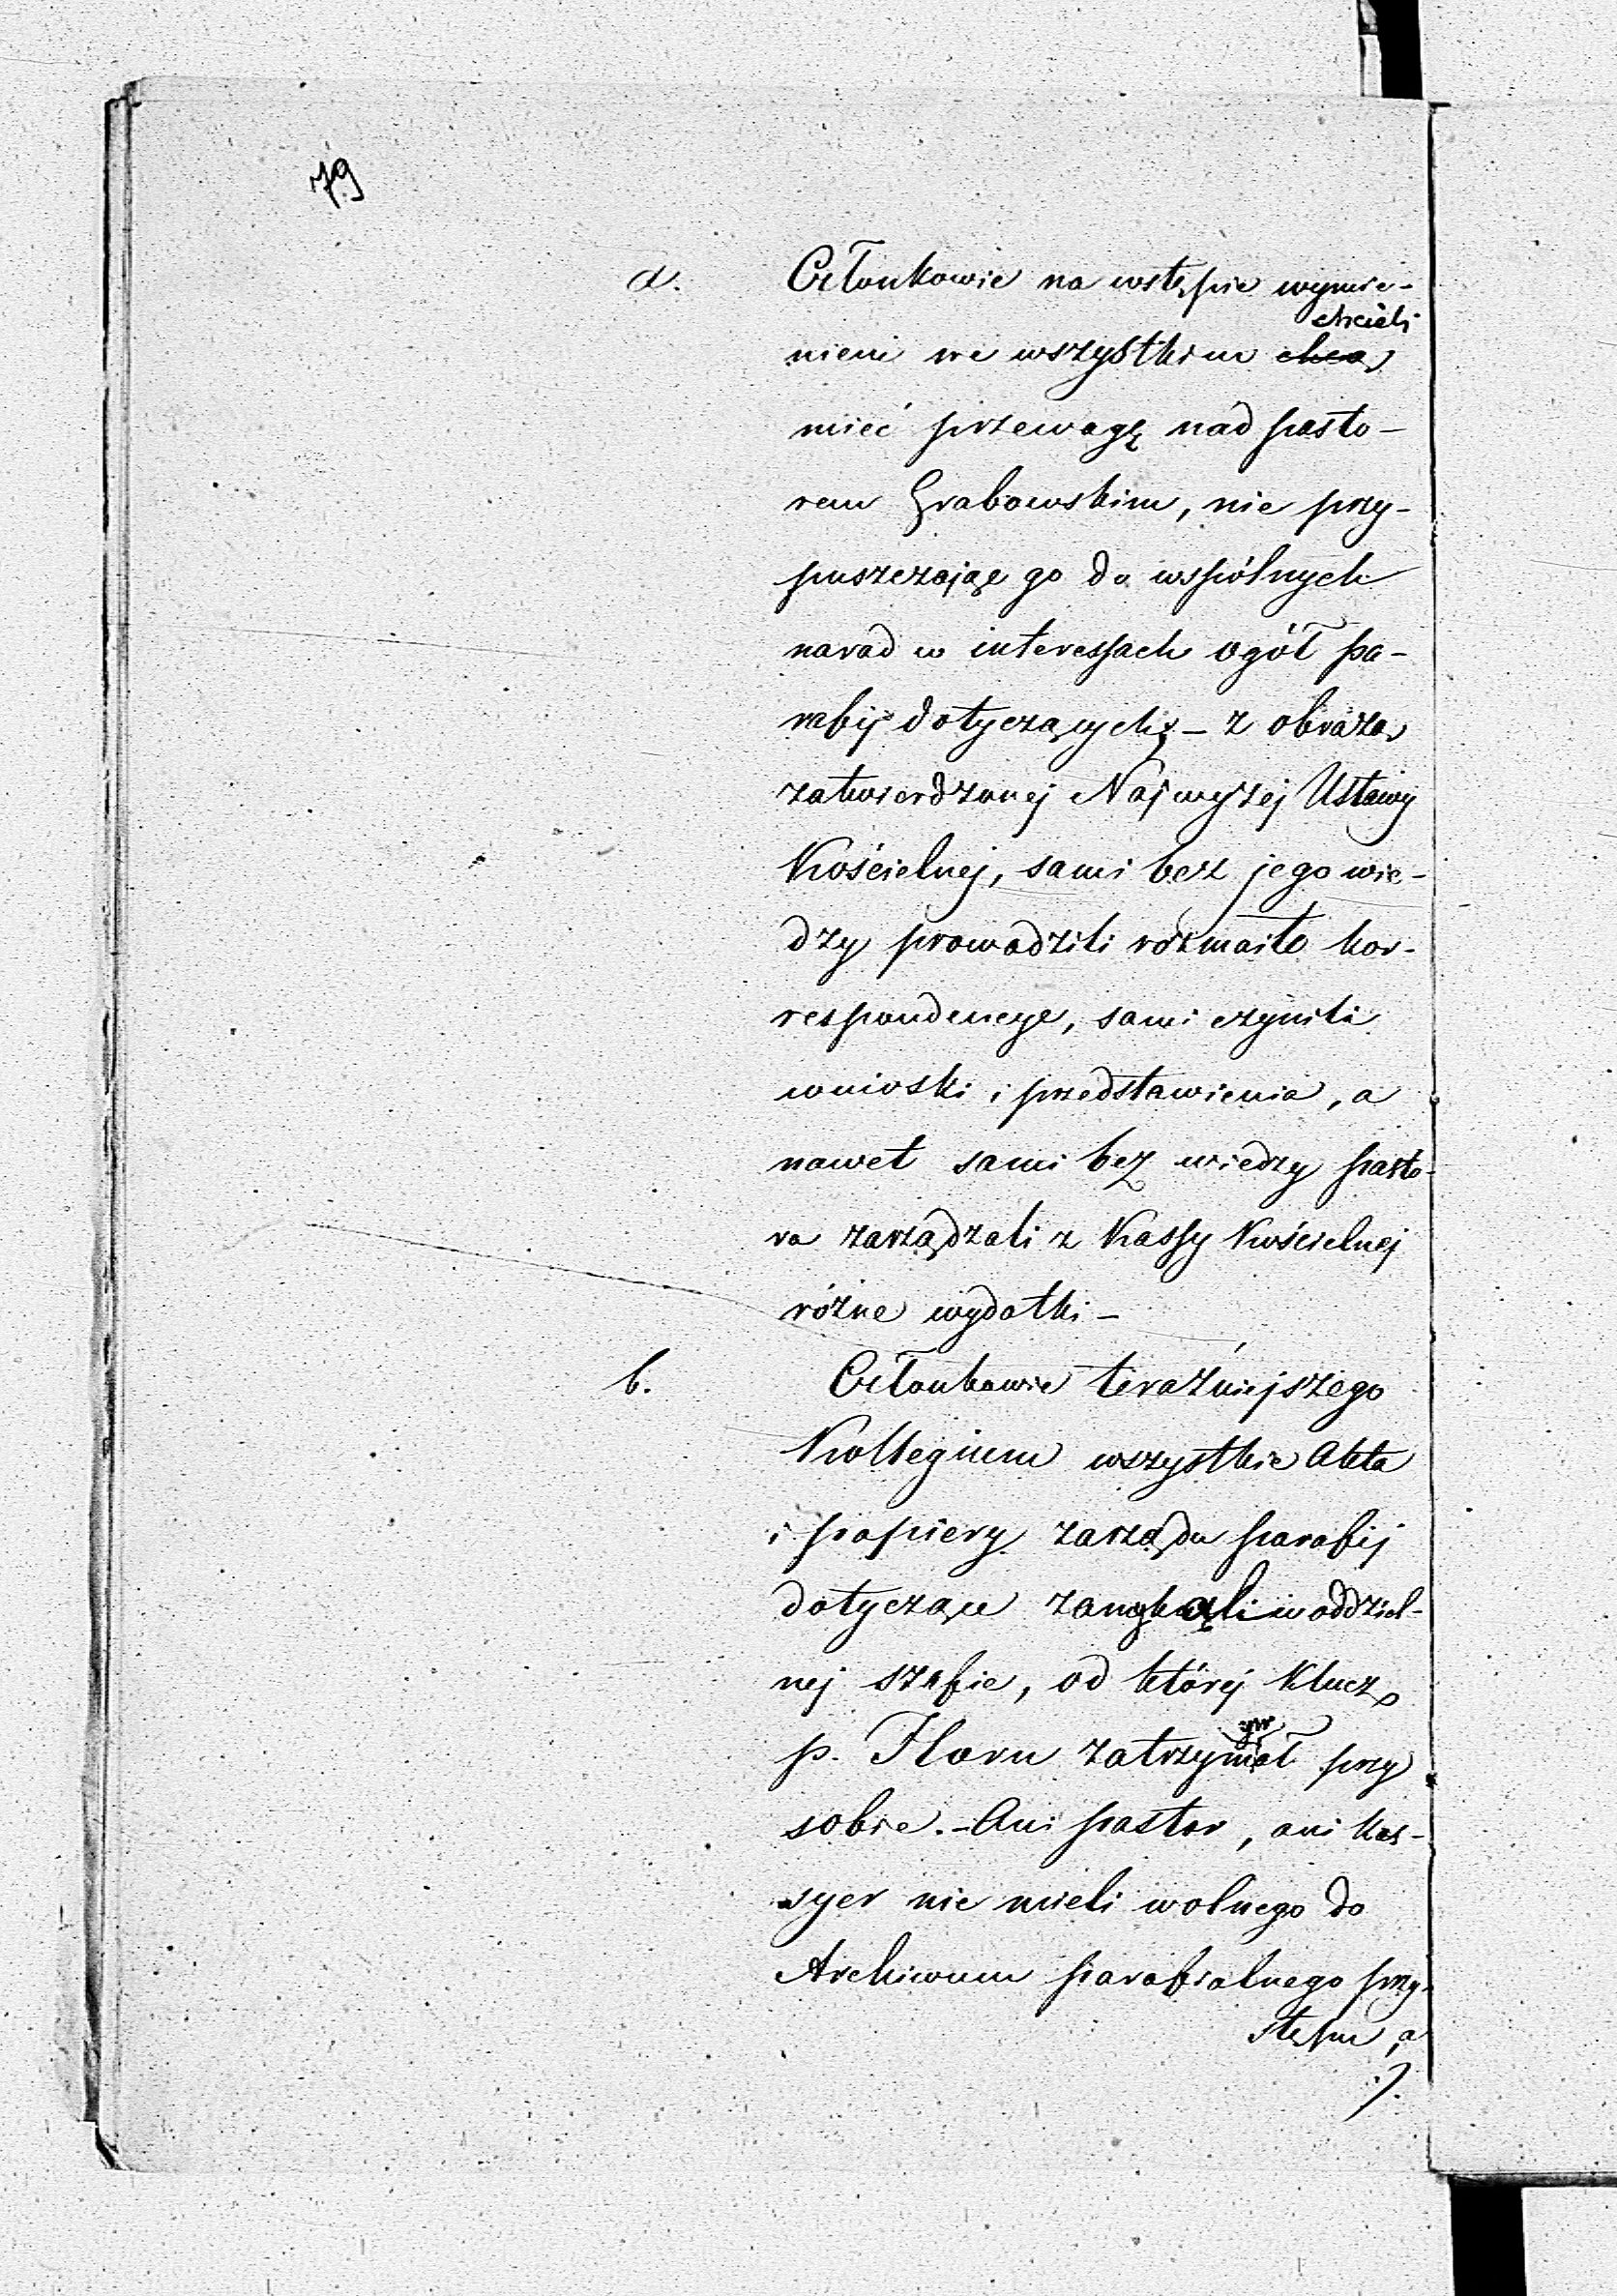 79
a. Członkowie na wstępie wymie-
chcieli
nieni we wszystkim chcą
mieć przewagę nad pasto-
rem Grabowskim, nie przy-
puszczając go do wspólnych
narad w interessach ogół pa-
rafij dotyczących, - z obrazą
zatwierdzonej Najwyżej Ustawy
Kościelnej, sami bez jego wie-
dzy prowadzili rozmaite kor-
respondencye, sami czynili
wnioski i przedstawienia, a
nawet sami bez wiedzy pasto-
ra zarządzali z Kassy Kościelnej
różne wydatki -
b. Członkowie teraźniejszego
Kollegium wszystkie Akta
i papiery zarządu parafij
dotyczące zamykali w oddziel-
nej szafie, od której Klucz
p. Horn zatrzymał przy
sobie. - Ani pastor, ani kas-
syer nie mieli wolnego do
Archiwum parafialnego przy-
stępu, a